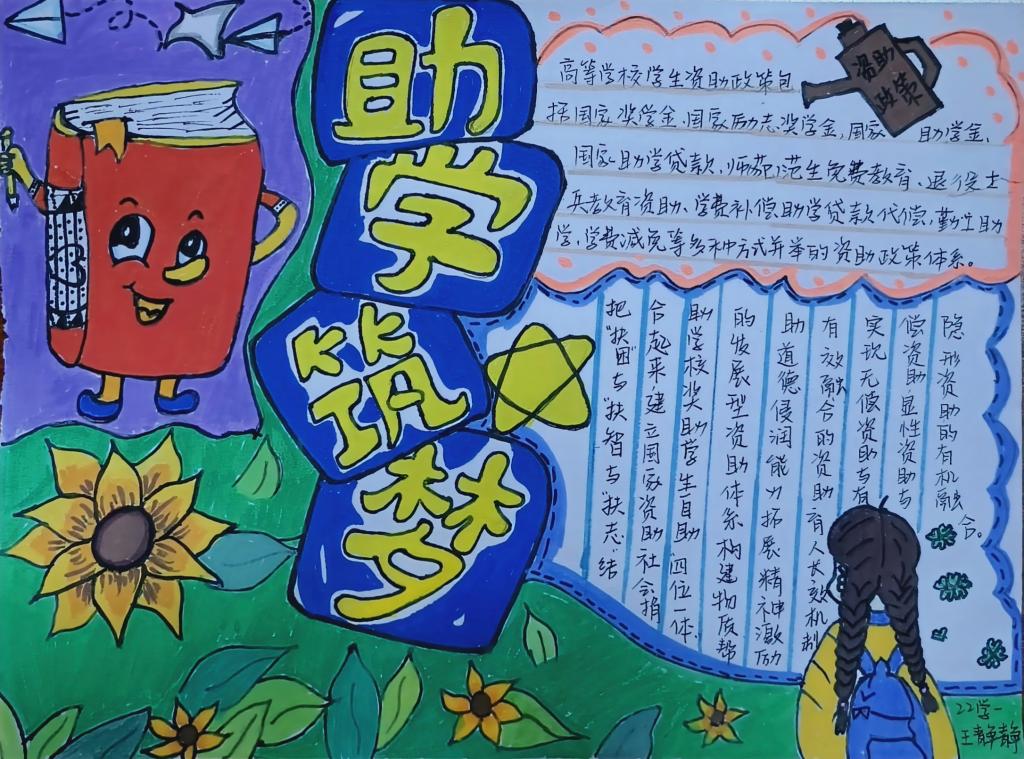 助
学
筑
梦
资助
政策
高等学校学生资助政策包
括国家奖学金、国家励志奖学金、国家 助学金、
国家助学贷款、师范生免费教育、退役士
兵教育资助、学费补偿助学贷款代偿、勤工助
学、学费减免等多种方式并举的资助政策体系。
把"扶困"与"扶智与"扶志"结
合起来建立国家资助社会捐
助学校奖助学生自助"四位一体
的发展型资助体系构建物质帮
助道德侵润能力拓展精神激励
有效融合的资助育人长效机制
实现无偿资助与有
偿资助显性资助与
隐形资助的有机融合。
22学一
王静静